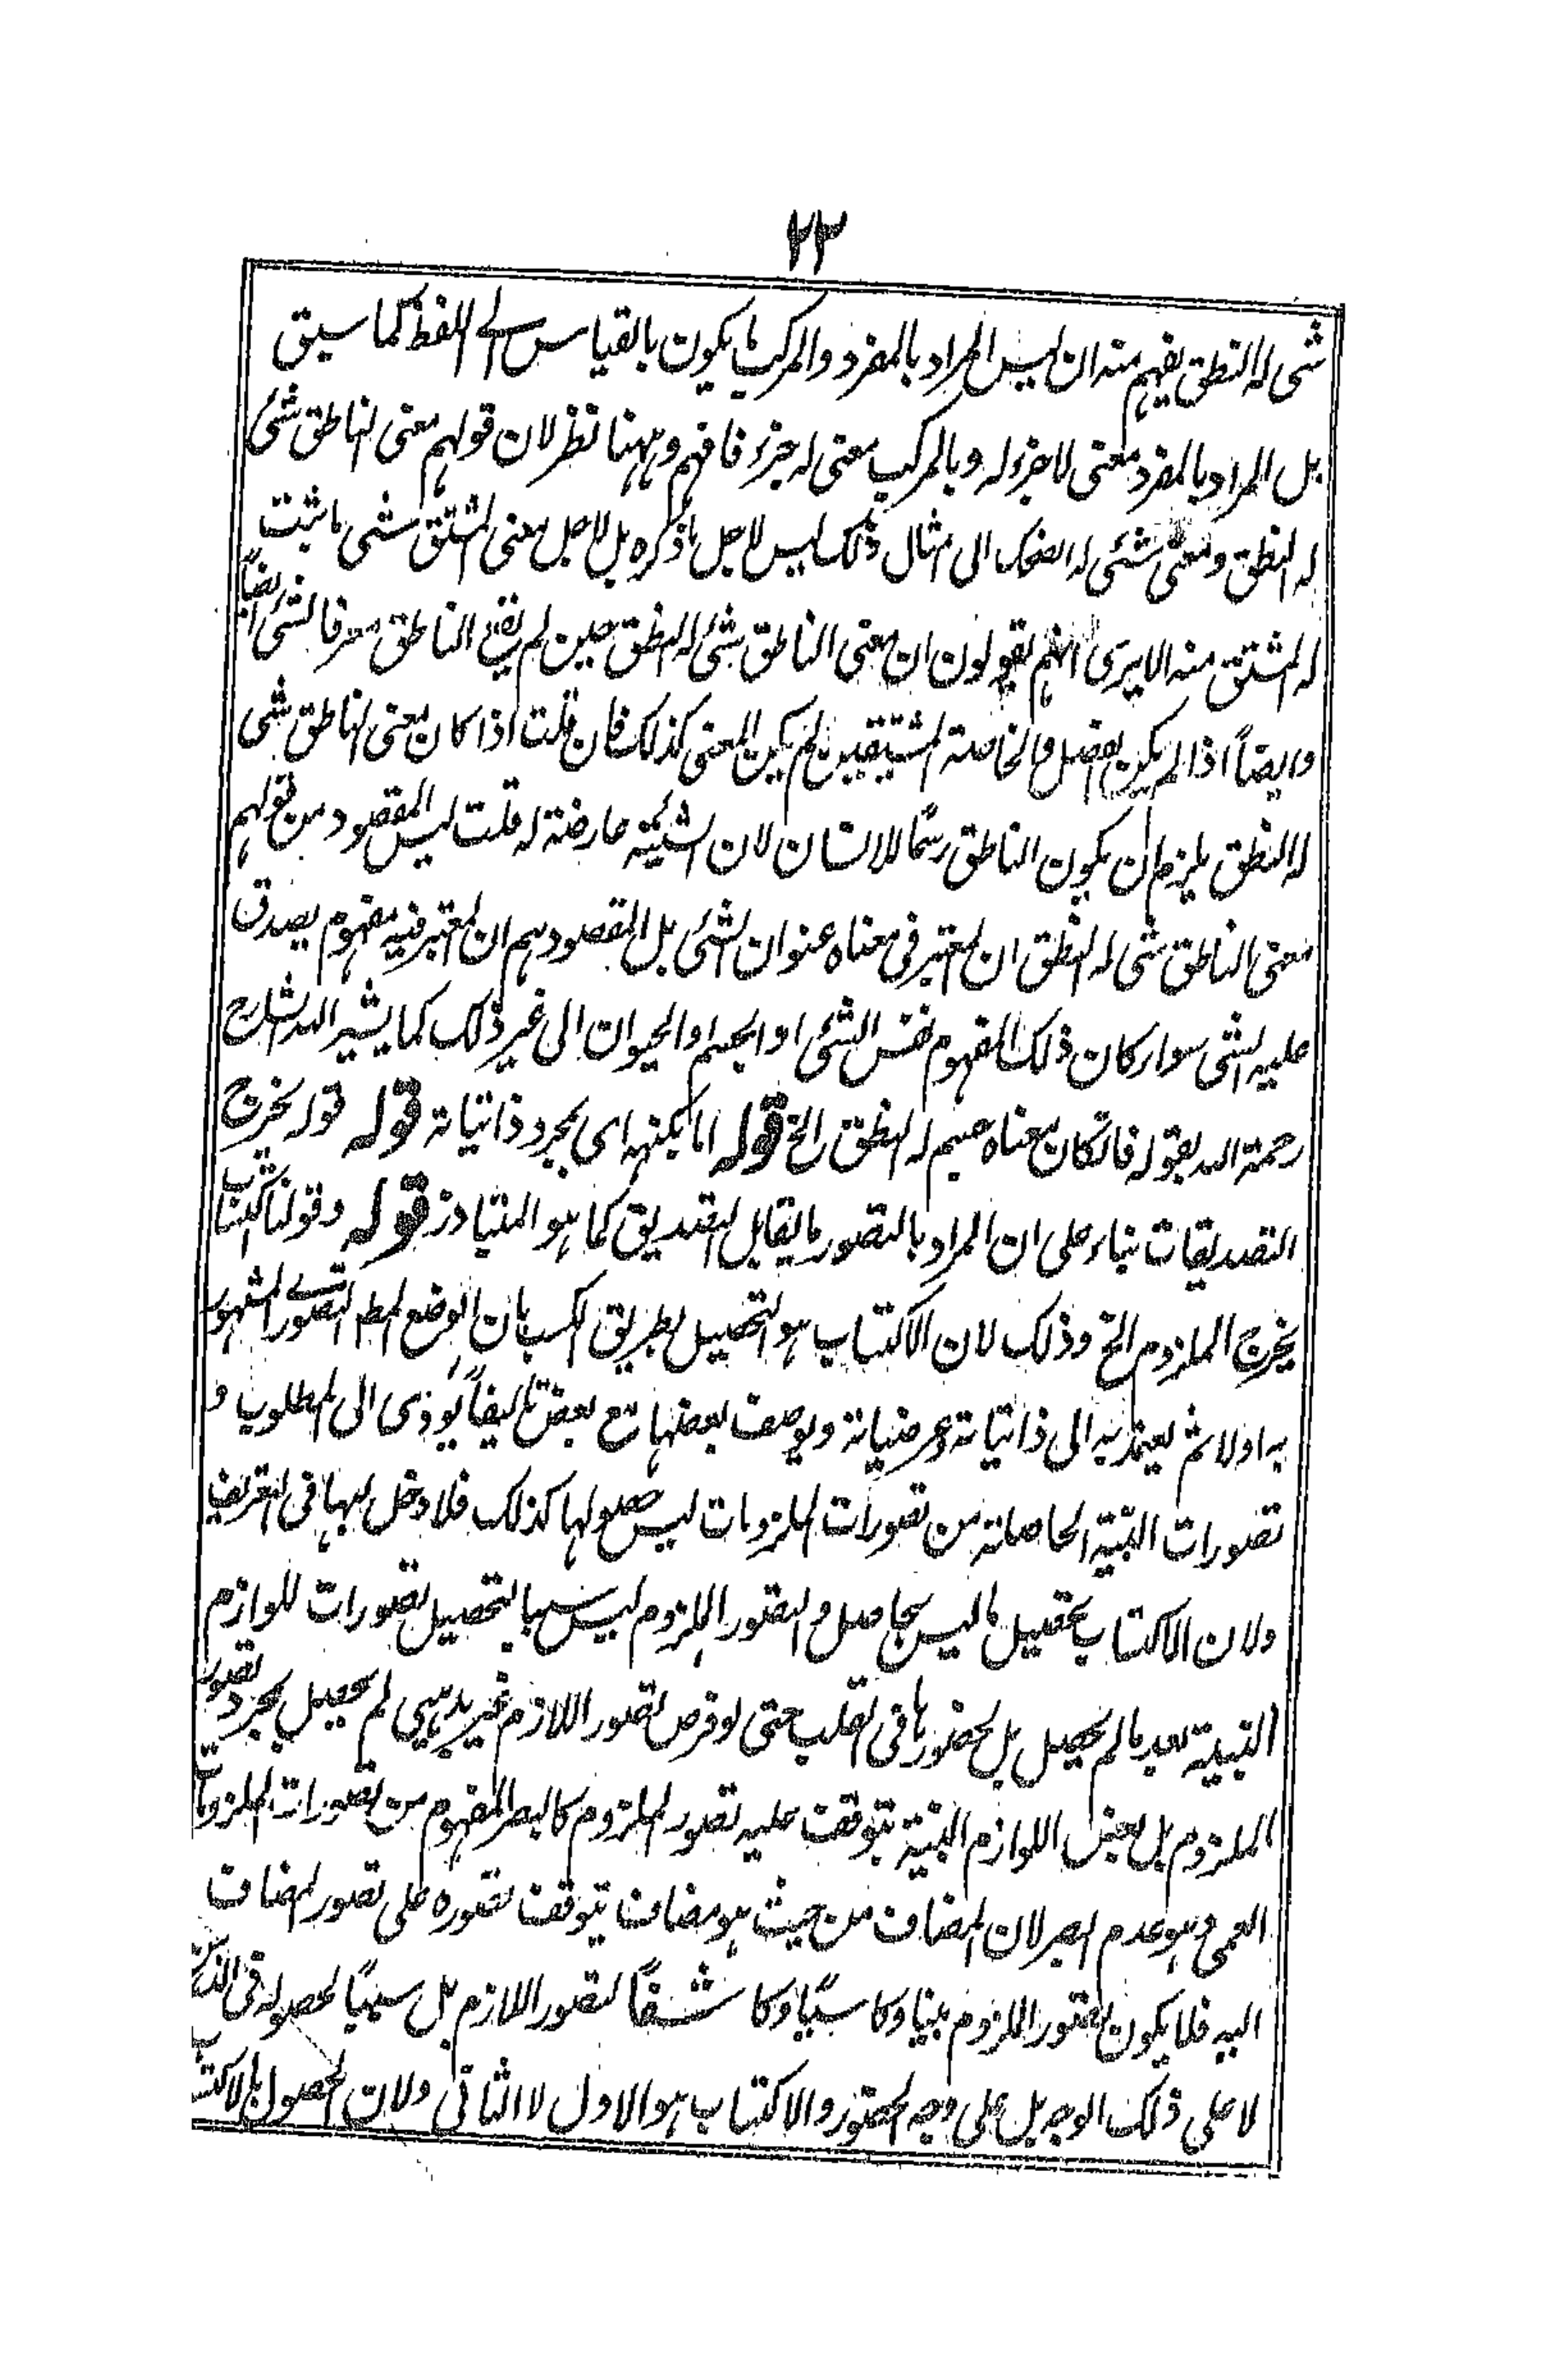 ٢٣
شئ له النطق يفهم منه ان ليس المراد بالمفرد والمركب ما يكون بالقياس الى اللفظ كما سبق
بل المراد بالمفرد معنى لا جزء له وبالمركب معنى له جزء فافهم وههنا نظر لان قولهم معنى الناطق شئ
له النطق ومعنى شئ له الضحك الى امثال ذلك ليس لاجل ما ذكره بل لاجل معنى المشتق شئ ما ثبت
له المشتق منه الا يرى انهم يقولون ان معنى الناطق شئ له النطق حين لم يقع الناطق معرفا لشئ ايضاً
وايضاً اذا لم يكن الفصل والخاصة مشتقين لم يكن المعنى كذلك فان قلت اذا كان معنى الناطق شئ
له النطق يلزم ان يكون الناطق رسمًا للانسان لان الشيئية عارضة له قلت ليس المقصود من قولهم
معنى الناطق شئ له النطق ان المعتبر فى معناه عنوان الشئ بل المقصودهم ان المعتبر فيه مفهوم يصدق
عليه الشئ سواء كان ذلك المفهوم نفس الشئ او الجسم او الحيوان الى غير ذلك كما يشير اليه الشارح
رحمة الله بقوله فاتكان معناه جسم له النطق الخ قوله اما بكنهه اى بمجرد ذاتياته قوله قوله يخرج
التصديقات بناء على ان المراد بالتصور ما يقابل التصديق كما هو المتبادر قوله وقولنا اكتساب
يخرج الملزوم الخ وذلك لان الاكتساب هو التحصيل بطريق الكسب بان الوضع المط التصورى المشهور
به اولا ثم يعمد به الى ذاتياته وعرضياته ويوصف بعضها مع بعض تاليفاً يؤدى الى المطلوب و
تصورات البيّنة الحاصلة من تصورات الملزومات ليس حصولها كذلك فلا دخل لها فى التعريف
ولان الاكتساب تحصيل ما ليس بحاصل والتصور الملزوم ليس سببا لتحصيل تصورات للوازم
البينة بعد ما لم يحصل بل لحضورها فى القلب حتى لو فرض تصور اللازم غير بديهى لم يحصل بمجرد تصور
الملزوم بل بعض اللوازم البيّنة يتوقف عليه تصور الملزوم كالبصر المفهوم من تصورات الملزومات
العمى وهو عدم البصر لان المضاف من حيث هو مضاف يتوقف تصوره على تصور المضاف
اليه فلا يكون تصور الملزوم مبينا وكاسبًا وكاشفًا لتصور اللازم بل سببًا لحصوله فى الذهن
لا على ذلك الوجه بل على وجه الحضور والاكتساب هو الاول لا الثانى ولان الحصول بالاكتساب